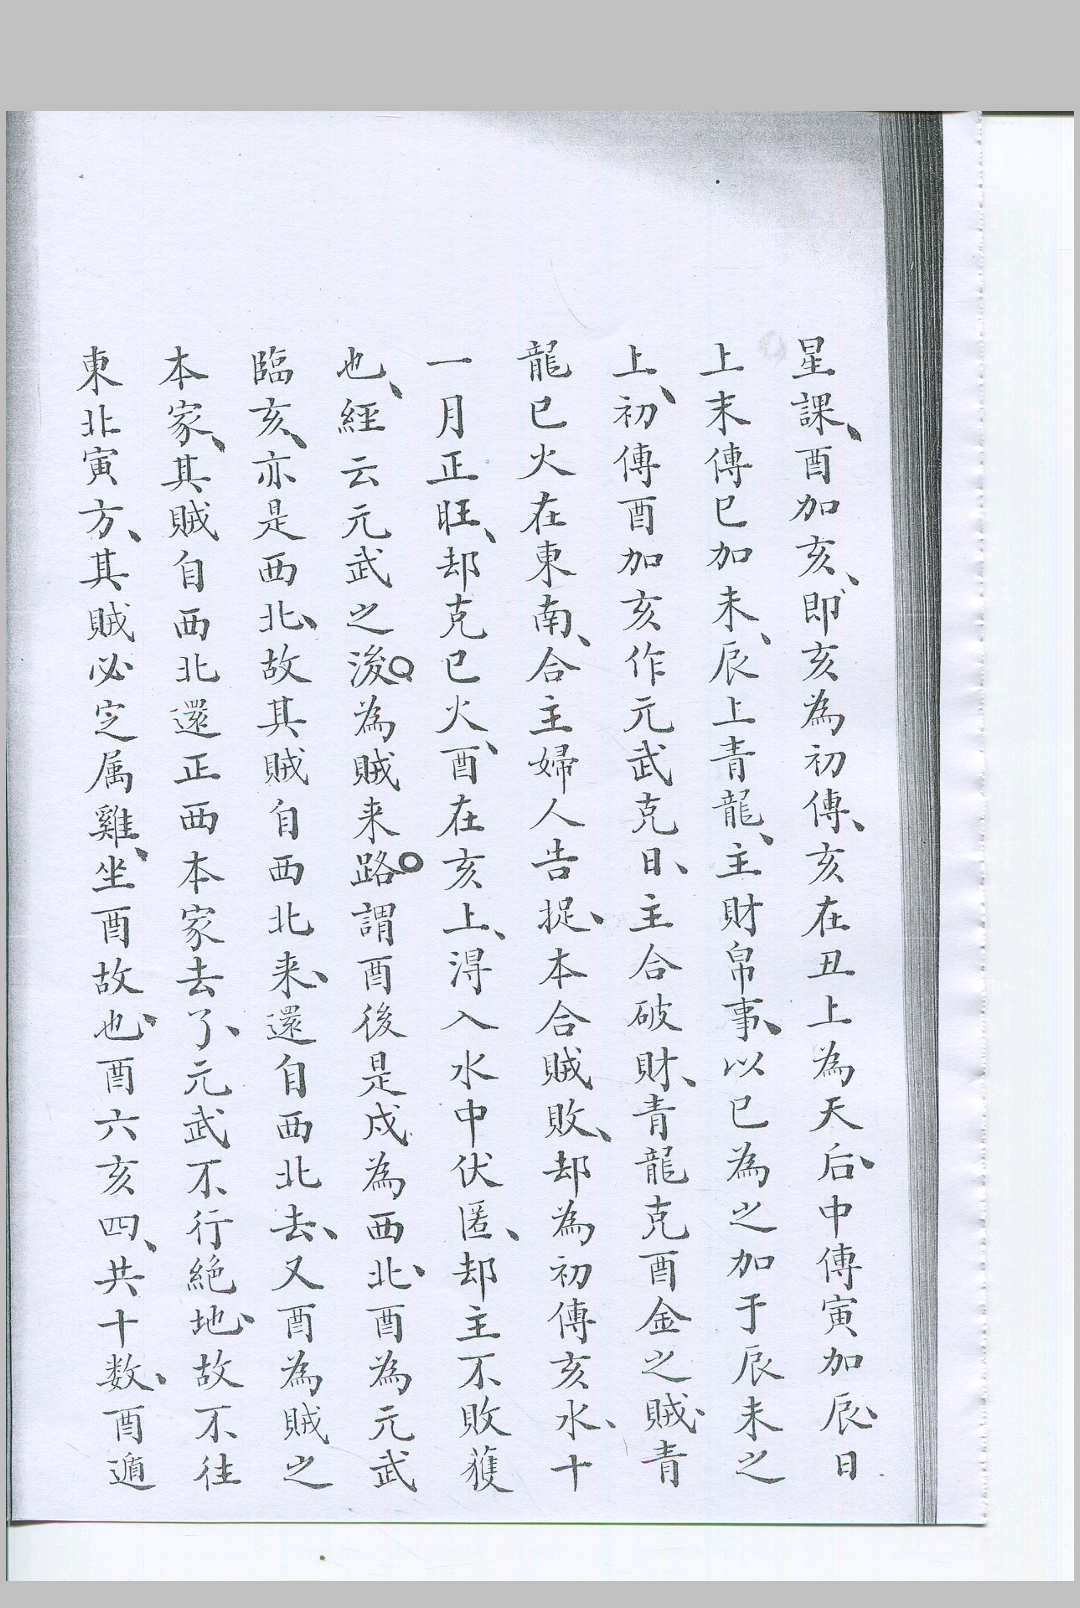 星課、酉加亥、即亥為初傳、亥在丑上為天后、中傳寅加辰、日
上末傳巳加未、辰上青龍、主財帛事、以巳為之加于辰未之
上、初傳酉加亥作元武克日、主合破財、青龍克酉金之賊、青
龍巳火在東南、合主婦人告捉、本合賊敗、却為初傳亥水、十
一月正旺、却克巳火、酉在亥上、淂入水中伏匿、却主不敗獲
也、經云元武之後○為賊来路○謂酉後是戌為西北、酉為元武
臨亥、亦是西北、故其賊自西北来、還自西北去、又酉為賊之
本家、其賊自西北還正西本家去了、元武不行絕地、故不往
東北寅方、其賊必定属雞、坐酉故也、酉六亥四、共十数、酉遁